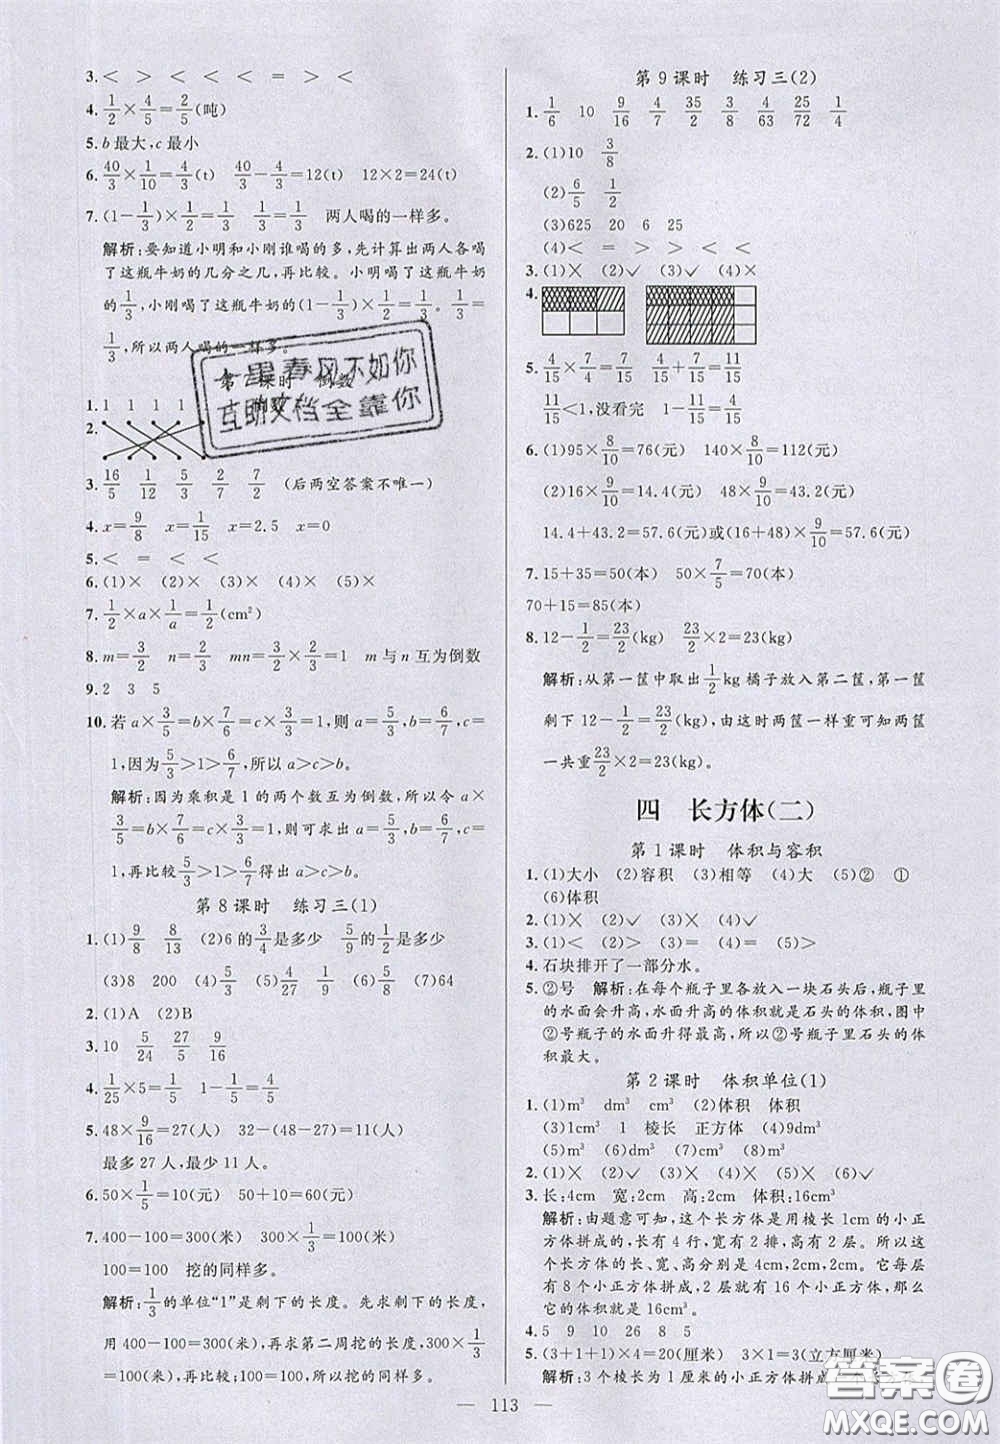 3. < > < < = > <
4. 1/2×4/5=2/5(吨)
5. b最大,c最小
6. 40/3×1/10=4/3(t) 40/3-4/3=12(t) 12×2=24(t)
7. (1-1/3)×1/3=1/3 1/3=1/3 两人喝的一样多。
解析:要知道小明和小刚谁喝的多,先计算出两人各喝
了这瓶牛奶的几分之几,再比较。小明喝了这瓶牛奶
的1/3,小刚喝了这瓶牛奶的(1-1/3)×1/3=1/3,1/3=
1/3,所以两人喝的一样多。
课时 倒数
春风不如你
互助文档全靠你
1. 1 1 1 1
2.
3. 16/5 1/12 5/3 2/7 7/2 (后两空答案不唯一)
4. x=9/8 x=1/15 x=2.5 x=0
5. < = < <
6. (1)× (2)× (3)× (4)× (5)×
7. 1/2×a×1/a=1/2(cm²)
8. m=3/2 n=2/3 mn=3/2×2/3=1 m与n互为倒数
9. 2 3 5
10. 若a×3/5=b×7/6=c×3/3=1,则a=5/3,b=6/7,c=
1,因为5/3>1>6/7,所以a>c>b。
解析:因为乘积是1的两个数互为倒数,所以令a×
3/5=b×7/6=c×3/3=1,则可求出a=5/3,b=6/7,c=
1,再比较5/3>1>6/7,得出a>c>b。
第8课时 练习三(1)
1. (1)9/8 8/13 (2)6的3/4是多少 5/9的1/2是多少
(3)8 200 (4)5/3 (5)4/27 5/9 (6)1/5 (7)64
2. (1)A (2)B
3. 10 5/24 27/5 9/16
4. 1/25×5=1/5 1-1/5=4/5
5. 48×9/16=27(人) 32-(48-27)=11(人)
最多27人,最少11人。
6. 50×1/5=10(元) 50+10=60(元)
7. 400-100=300(米) 300×1/3=100(米)
100=100 挖的同样多。
解析:1/3的单位“1”是剩下的长度。先求剩下的长度,
用400-100=300(米),再求第二周挖的长度,300×1/3
=100(米),再比较100=100,得出挖的同样多。
第9课时 练习三(2)
1. 1/6 10 9/16 4/7 35/2 3/8 4/63 25/72 3/4
2. (1)10 3/8
(2)6/5 1/2
(3)625 20 6 25
(4)< = > < >
3. (1)× (2)✓ (3)✓ (4)×
4.
5. 4/15×7/4=7/15 7/15+4/15=11/15
11/15<1,没看完 1-11/15=4/15
6. (1)95×8/10=76(元) 140×8/10=112(元)
(2)16×9/10=14.4(元) 48×9/10=43.2(元)
14.4+43.2=57.6(元)或(16+48)×9/10=57.6(元)
7. 15+35=50(本) 50×7/5=70(本)
70+15=85(本)
8. 12-1/2=23/2(kg) 23/2×2=23(kg)
解析:从第一筐中取出1/2kg橘子放入第二筐,第一筐
剩下12-1/2=23/2(kg),由这时两筐一样重可知两筐
一共重23/2×2=23(kg)
四 长方体(二)
第1课时 体积与容积
1. (1)大小 (2)容积 (3)相等 (4)大 (5)② ①
(6)体积
2. (1)× (2)✓ (3)× (4)✓
3. (1)< (2)> (3)= (4)= (5)>
4. 石块排开了一部分水。
5. ②号 解析:在每个瓶子里各放入一块石头后,瓶子里
的水面会升高,水面升高的体积就是石头的体积,图中
②号瓶子的水面升得最高,所以②号瓶子里石头的体
积最大。
第2课时 体积单位(1)
1. (1)m³ dm³ cm³ (2)体积 体积
(3)1cm³ 1 棱长 正方体 (4)9dm³
(5)m³ (6)dm³ (7)cm³ (8)m³
2. (1)× (2)✓ (3)× (4)× (5)× (6)✓
3. 长:4cm 宽:2cm 高:2cm 体积:16cm³
解析:由题意可知,这个长方体是用棱长1cm的小正
方体拼成的,长有4行,宽有2排,高有2层。所以这
个长方体的长、宽、高分别是4cm,2cm,2cm。它每层
有8个小正方体拼成,2层就有16个小正方体,那么
它的体积就是16cm³。
4. 5 9 10 26 8 5
5. (3+1+1)×4=20(厘米) 3×1=3(立方厘米)
解析:3个棱长为1厘米的小正方体拼成
113
答案圈
MXQE.COM